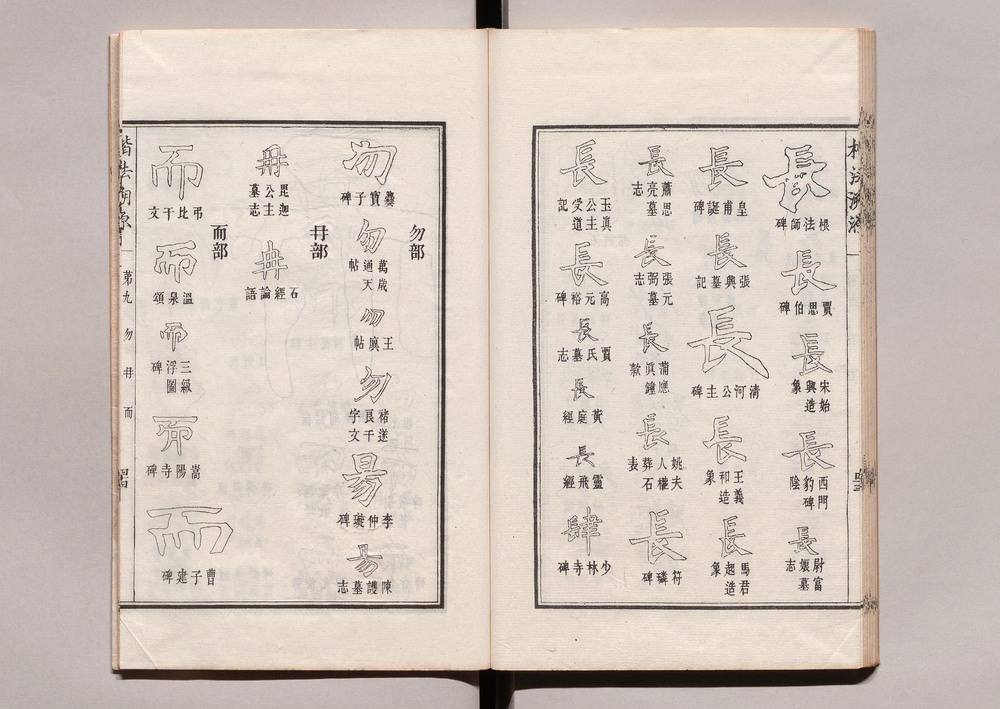 長
根法師碑
長
賈思伯碑
長
宋始興造象
長
西門豹碑陰
長
尉富娘墓志
長
皇甫誕碑
長
張興墓記
長
清河公主碑
長
王義和造象
長
馬君起造象
長
蕭思亮墓志
長
張元弼墓志
長
蒲應眞鐘款
長
姚夫人權葬石表
長
符璘碑
長
玉眞公主受道記
長
高元裕碑
長
賈氏墓志
長
黃庭經
長
靈飛經
肆
少林寺碑
勿部
勿
爨寶子碑
勿
萬歲通天帖
勿
王廙帖
勿
褚遂良千字文
易
李仲璇碑
易
陳護墓志
冄部
冄
毘迦公主墓志
冉
石經論語
而部
而
弔比干文
而
溫泉頌
而
三級浮圖碑
而
嵩陽寺碑
而
曹子建碑
楷法溯源
第九 勿 冄 而